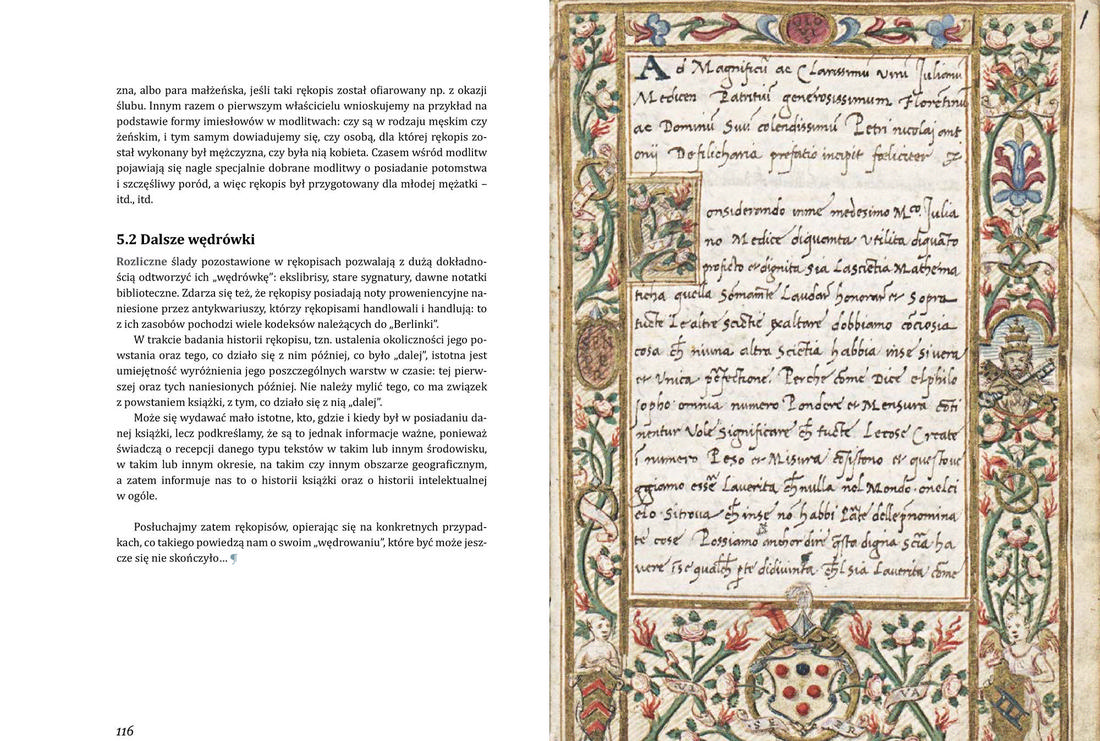 zna, albo para małżeńska, jeśli taki rękopis został ofiarowany np. z okazji
ślubu. Innym razem o pierwszym właścicielu wnioskujemy na przykład na
podstawie formy imiesłowów w modlitwach: czy są w rodzaju męskim czy
żeńskim, i tym samym dowiadujemy się, czy osobą, dla której rękopis zo-
stał wykonany był mężczyzna, czy była nią kobieta. Czasem wśród modlitw
pojawiają się nagle specjalnie dobrane modlitwy o posiadanie potomstwa
i szczęśliwy poród, a więc rękopis był przygotowany dla młodej mężatki –
itd., itd.
5.2 Dalsze wędrówki
Rozliczne ślady pozostawione w rękopisach pozwalają z dużą dokładno-
ścią odtworzyć ich „wędrówkę”: ekslibrisy, stare sygnatury, dawne notatki
biblioteczne. Zdarza się też, że rękopisy posiadają noty proweniencyjne na-
niesione przez antykwariuszy, którzy rękopisami handlowali i handlują: to
z ich zasobów pochodzi wiele kodeksów należących do „Berlinki”.
W trakcie badania historii rękopisu, tzn. ustalenia okoliczności jego po-
wstania oraz tego, co działo się z nim później, co było „dalej”, istotna jest
umiejętność wyróżnienia jego poszczególnych warstw w czasie: tej pierw-
szej oraz tych naniesionych później. Nie należy mylić tego, co ma związek
z powstaniem książki, z tym, co działo się z nią „dalej”.
Może się wydawać mało istotne, kto, gdzie i kiedy był w posiadaniu da-
nej książki, lecz podkreślamy, że są to jednak informacje ważne, ponieważ
świadczą o recepcji danego typu tekstów w takim lub innym środowisku,
w takim lub innym okresie, na takim czy innym obszarze geograficznym,
a zatem informuje nas to o historii książki oraz o historii intelektualnej
w ogóle.
Posłuchajmy zatem rękopisów, opierając się na konkretnych przypad-
kach, co takiego powiedzą nam o swoim „wędrowaniu”, które być może jesz-
cze się nie skończyło... ¶
116
1
Ad Magnificū ac Clarissimū virū Julianū
Medicen Patritiū generosissimum Florentinū
ac Dominū Suū colendissimū Petri nicolaj ant
onij De filicharia prefatio incipit fœliciter
Considerando inme medesimo Mco. Julia
no Medice diquanta Utilita diquāto
proficto et dignita sia Lasciētia Mathema
ticha quella Sōmamte Laudar honorare et Sopra
tucte Le altre sciētie exaltare dobbiamo cōciosia
cosa ch niuna altra Scietia habbia inse si vera
et Unica pfectione. Perche come Dice el philo
sopho omnia numero Pondere et Mensura cōti
nentur Vole Significare ch tucte Lecose Create
i numero Peso et Misura cōsistono et questo ve
ggiamo esse Laverita ch nulla nel Mondo onelci
elo Sitrova ch inse no habbi pate delle pnomina
te cose Possiamo anchor dire qsta digna sciā ha
vere ise qualch pte didivinita ch sia Laverita come
SE
VA